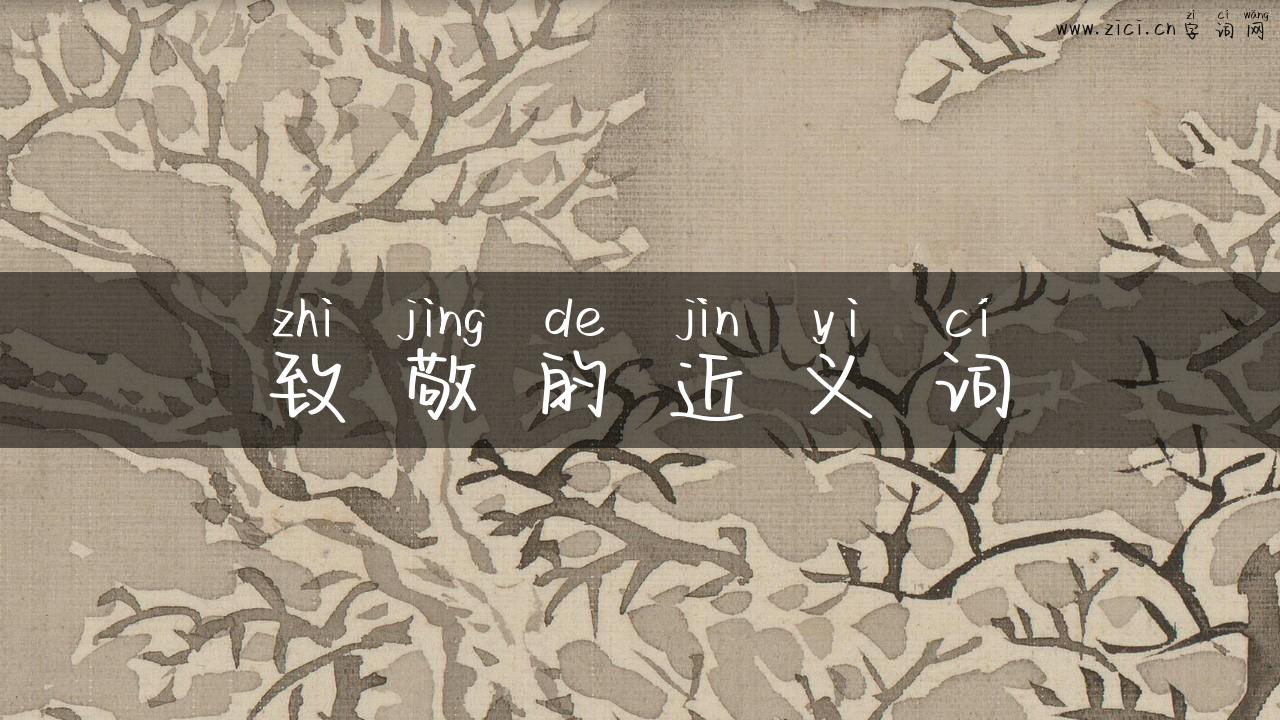 zì cí wǎng
www.zici.cn 字词网
zhì jìng de jìn yì cí
致敬的近义词